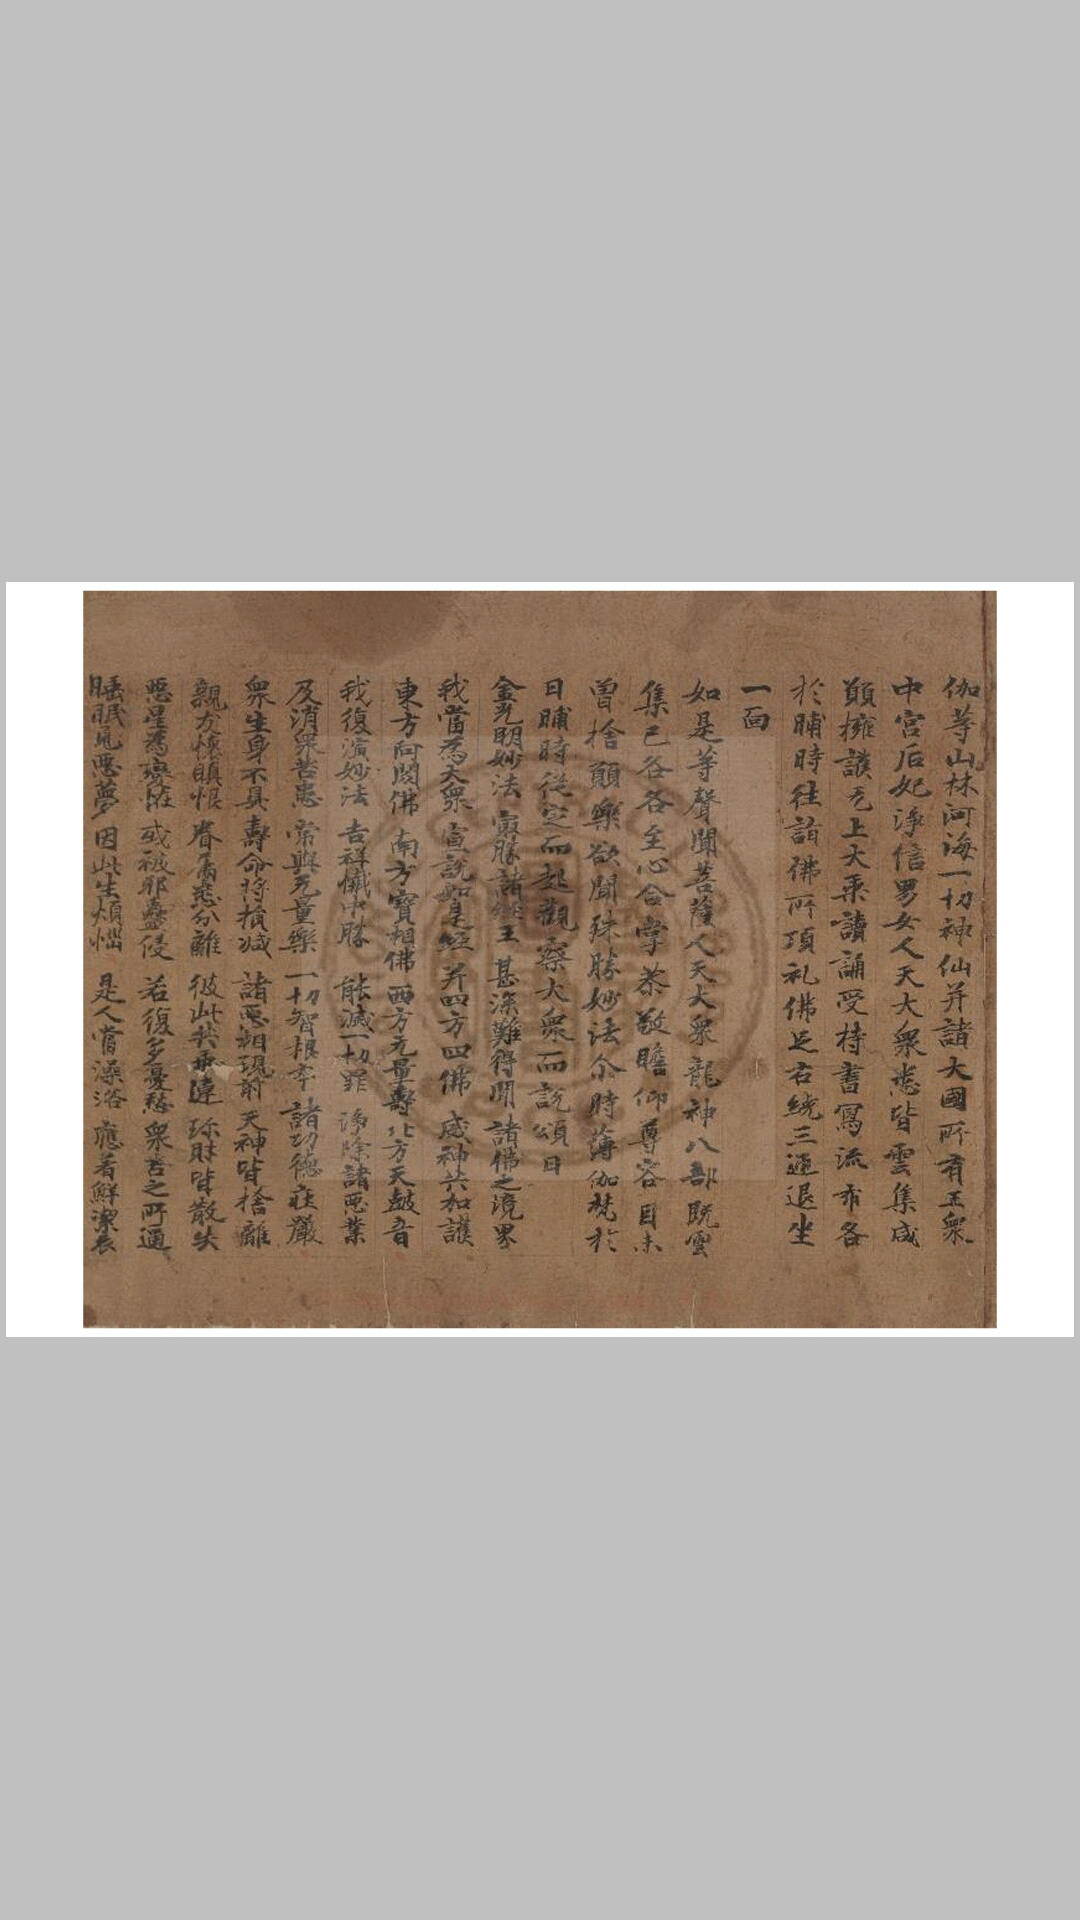 伽等山林河海一切神仙并諸大國所有王衆
中宮后妃淨信男女人天大衆悉皆雲集咸
願擁護无上大乘讀誦受持書寫流布各
於晡時往詣佛所頂礼佛足右繞三迊退坐
一面
如是等聲聞菩薩人天大衆龍神八部既雲
集已各各至心合掌恭敬瞻仰尊容目未
曾捨願樂欲聞殊勝妙法尒時薄伽梵於
日晡時從定而起觀察大衆而說頌曰
金光明妙法 㝡勝諸經王 甚深難得聞 諸佛之境界
我當為大衆 宣說如是經 并四方四佛 威神共加護
東方阿閦佛 南方寶相佛 西方无量壽 北方天皷音
我復演妙法 吉祥懺中勝 能滅一切罪 淨除諸惡業
及消衆苦患 常與无量樂 一切智根本 諸功德莊嚴
衆生身不具 壽命將損減 諸惡相現前 天神皆捨離
親友懷瞋恨 眷屬悉分離 彼此共乖違 珎財皆散失
惡星為變怪 或被邪蠱侵 若復多憂愁 衆苦之所逼
睡眠見惡夢 因此生煩惱 是人當澡浴 應著鮮潔衣